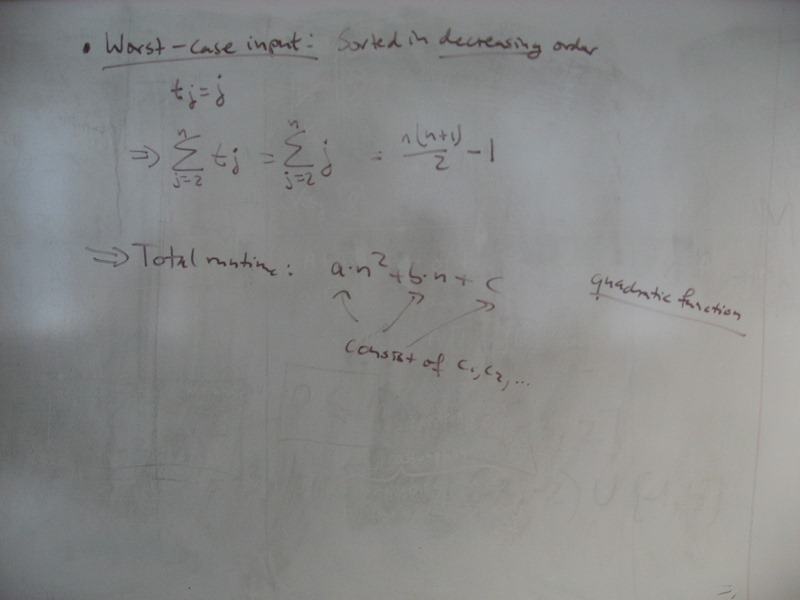 • Worst-case input: Sorted in decreasing order
tj = j
⇒ ∑_{j=2}^{n} tj = ∑_{j=2}^{n} j = n(n+1)/2 - 1
⇒ Total runtime: a·n² + b·n + c quadratic function
consist of c₁, c₂, ...